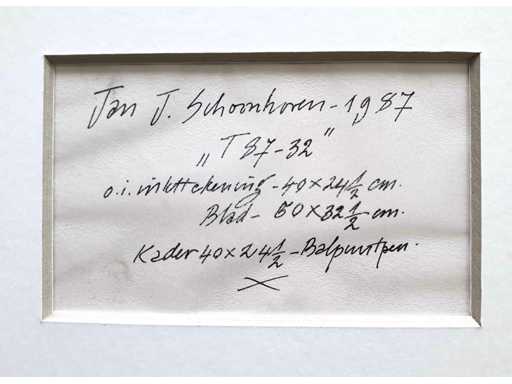 Jan J. Schoonhoven - 1987
„T 87-32"
o.i. inkttekening - 40 x 24 1/2 cm.
Blad - 50 x 32 1/2 cm.
Kader 40 x 24 1/2 - Balpuntpen.